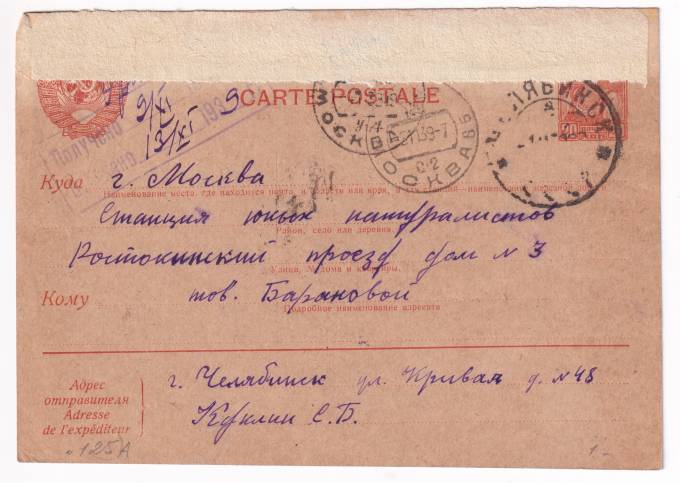 CARTE POSTALE
Получено
9/XI
13/XI 1939
МОСКВА
МОСКВА
ЧЕЛЯБИНСК
20
Куда г. Москва
Наименование места, где находится почта, и области или края, а для станций—наименование железной дороги
Станция юных натуралистов
Район, село или деревня
Ростокинский проезд дом N 3
Улица, № дома и квартиры.
Кому тов. Барановой
Подробное наименование адресата
Адрес отправителя
Adresse de l'expéditeur
г. Челябинск ул. Кривая д. N 48
Куклин С.Б.
125А
1-